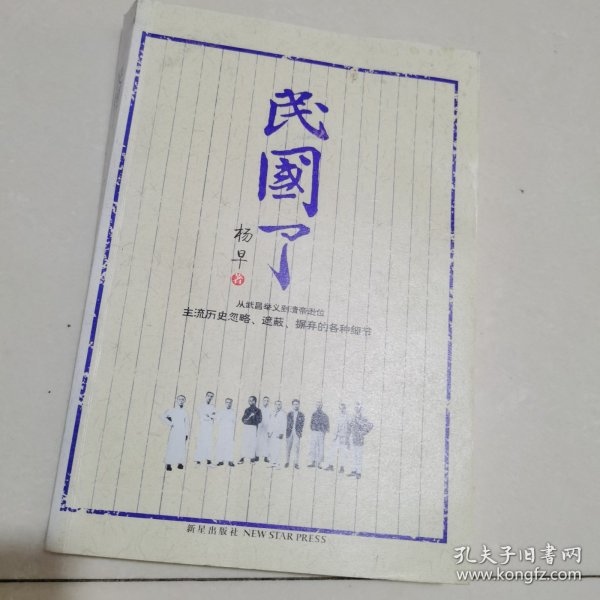 民國了
杨早 著
从武昌举义到清帝逊位
主流历史忽略、遮蔽、摒弃的各种细节
新星出版社 NEW STAR PRESS
孔夫子旧书网
www.kongfz.com